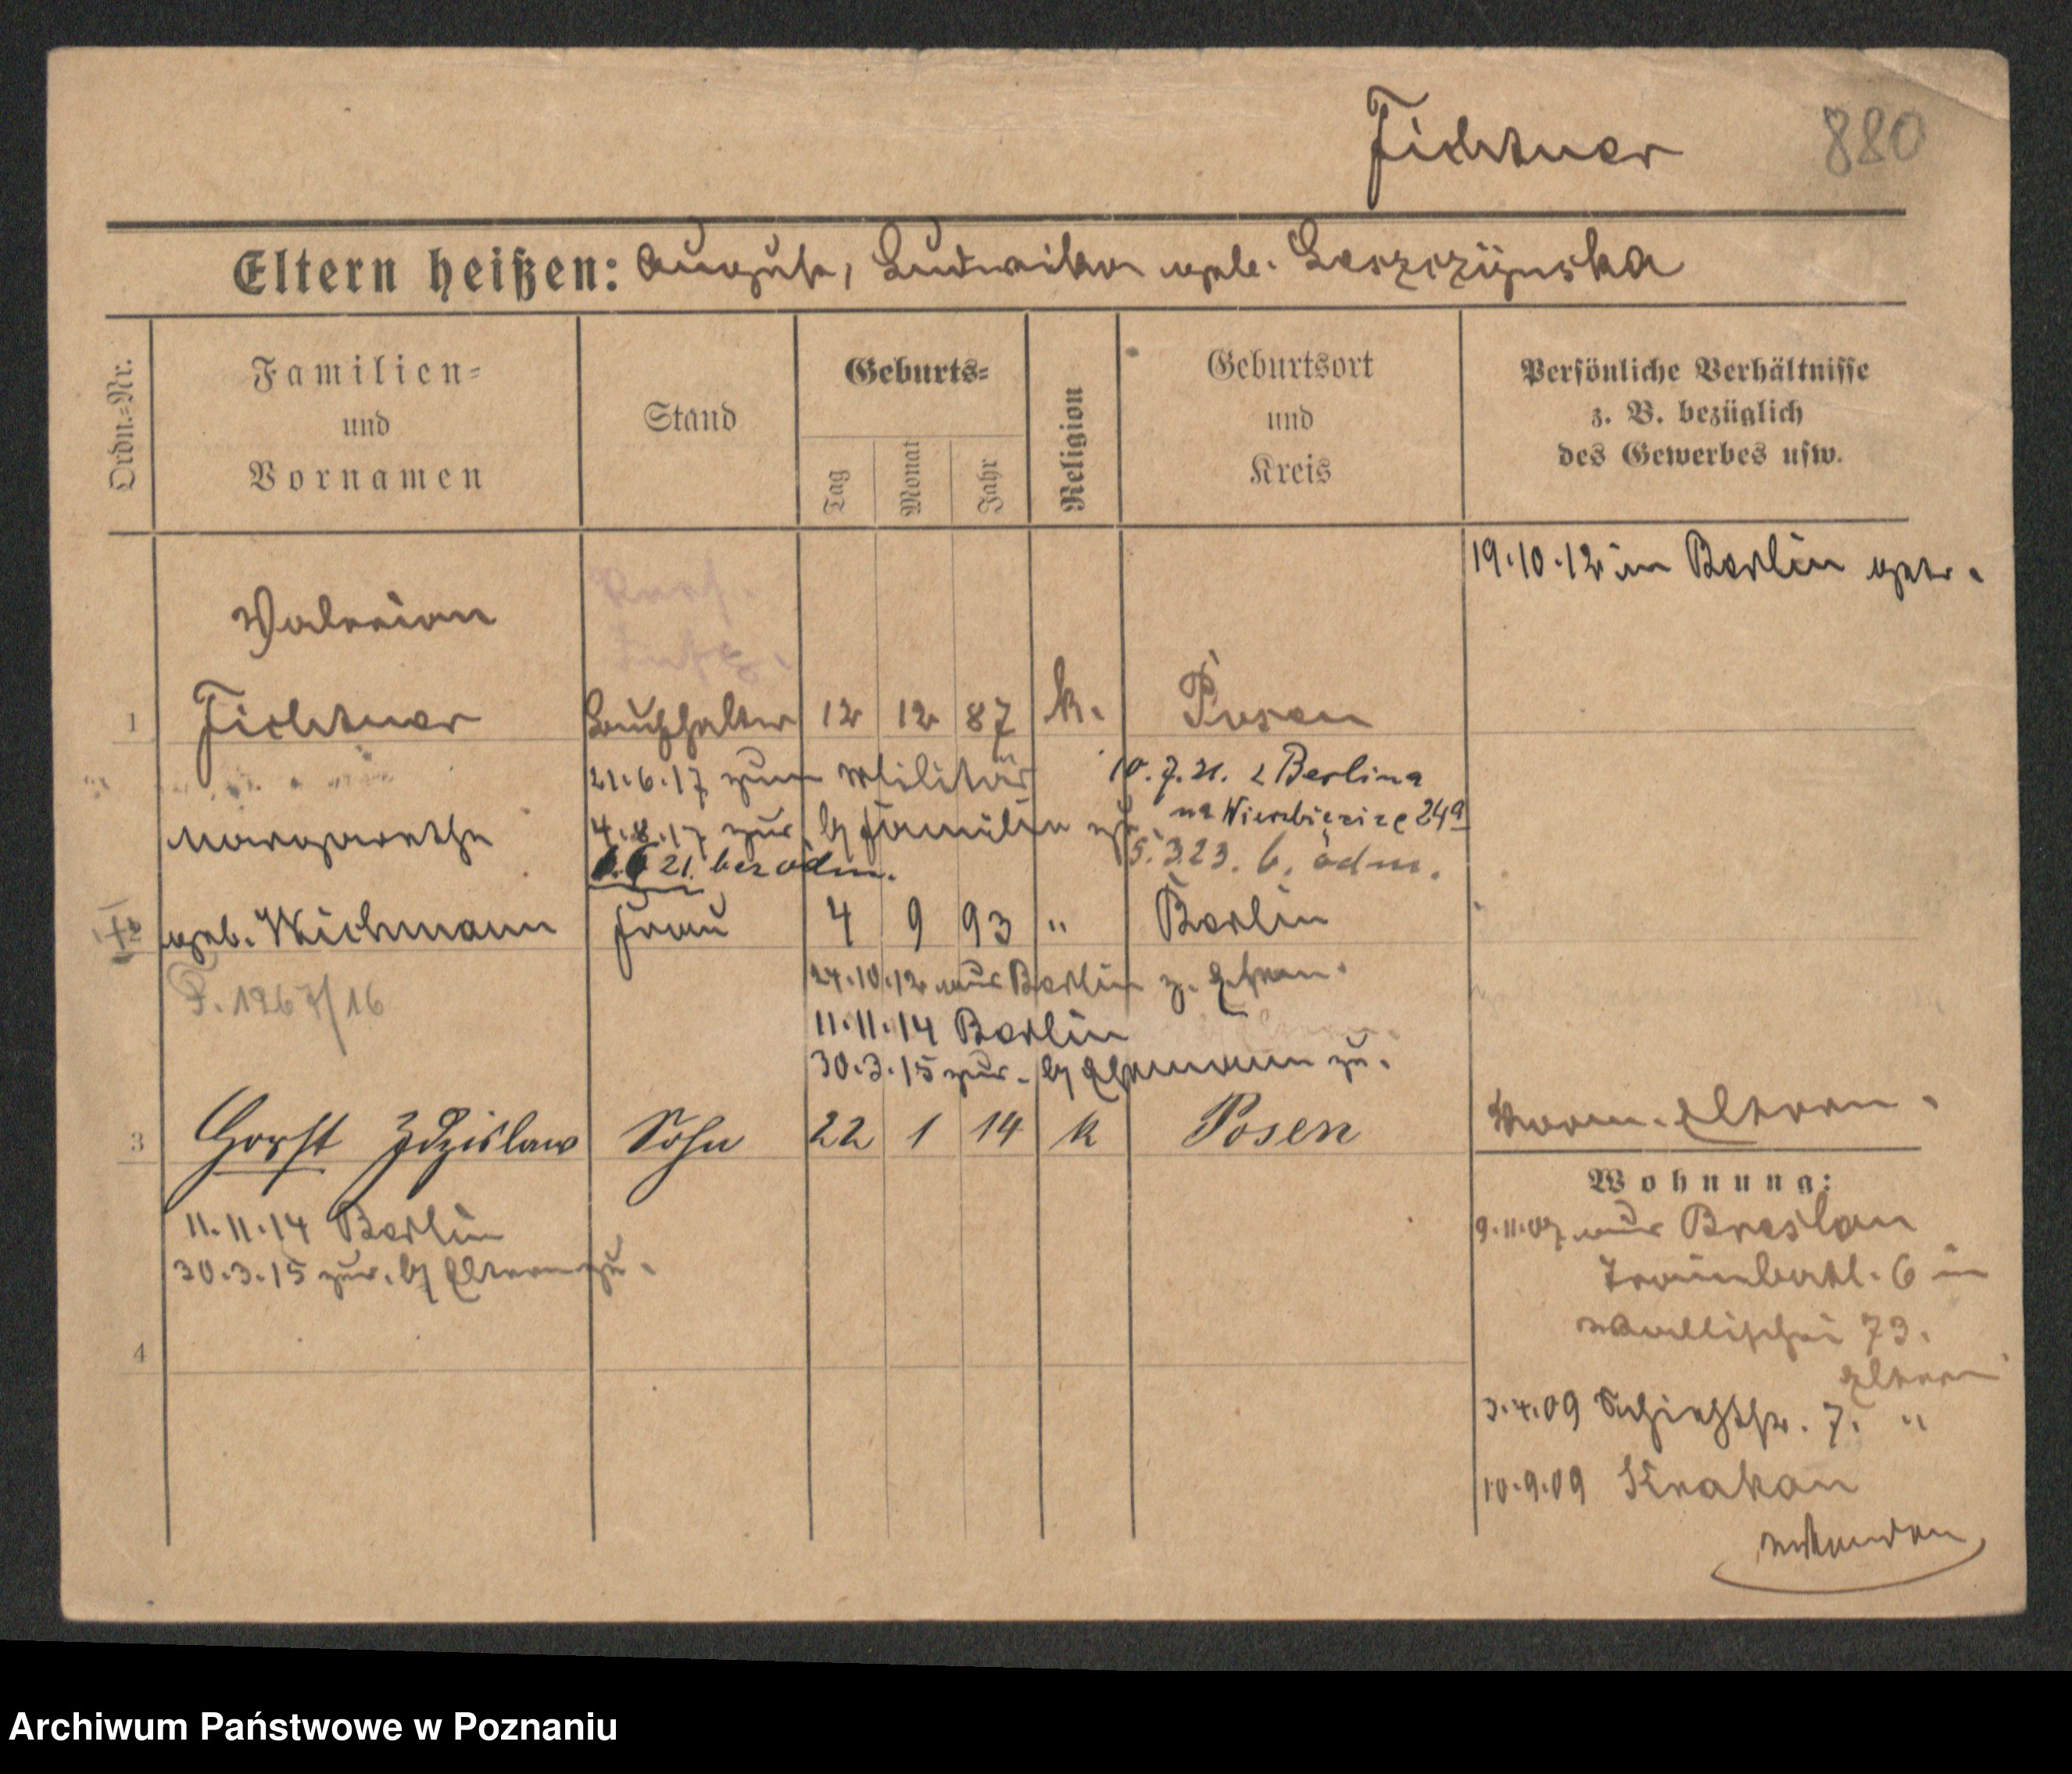 Fichtner 880
Eltern heißen: August, Ludwika geb. Leszczyńska
Ordn.=Nr.
Familien=
und
Vornamen
Stand
Geburts=
Tag
Monat
Jahr
Religion
Geburtsort
und
Kreis
Persönliche Verhältnisse
z. B. bezüglich
des Gewerbes usw.
19.10.12 in Berlin getr.
Valerian
1 Fichtner Buchhalter 12 12 87 k. Posen
21.6.17 zum Militär
10.7.21. z Berlina
na Wierzbięcice 24a
4.8.17 zur. b/ Familie
21. bez odm.
5.3.23. b. odm.
Margarethe
geb. Wichmann Frau 4 9 93 " Berlin
P. 1967/16
24.10.12 aus Berlin z. Ehem.
11.11.14 Berlin
30.3.15 zur. b/ Ehemann zu.
3 Horst Zdzislaw Sohn 22 1 14 k Posen
Eltern.
11.11.14 Berlin
30.3.15 zur. b/ Eltern zu.
4
Wohnung:
9.11.07 aus Breslau
6 in
Wallischei 73.
Eltern
3.4.09 Schießstr. 7. "
10.9.09 Krakau
Archiwum Państwowe w Poznaniu